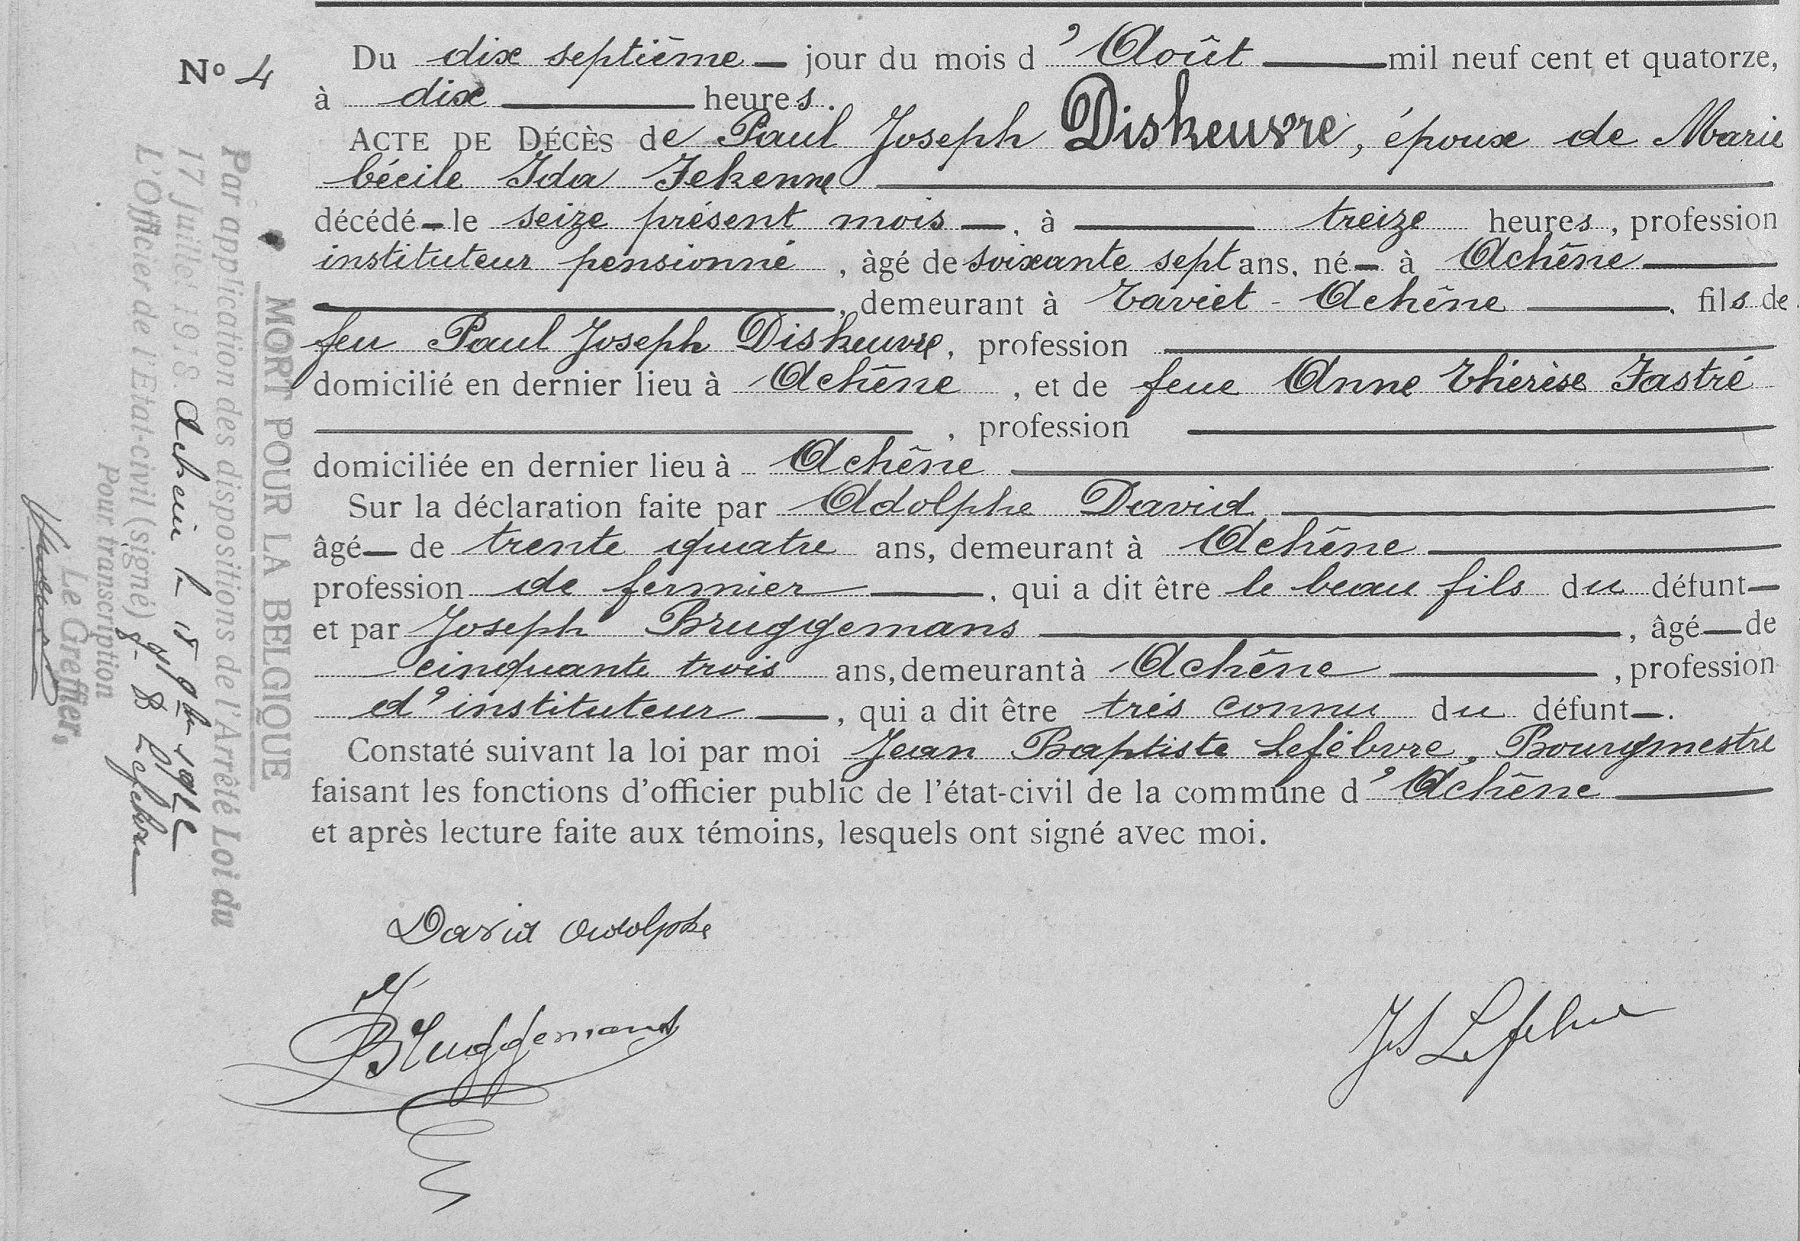 Nº 4
Du dix septième jour du mois d'Août mil neuf cent et quatorze,
à dix heures.
ACTE DE DÉCÈS de Paul Joseph Diskeuvre, époux de Marie
Cécile Ida Jekenne
décédé le seize présent mois, à treize heures, profession
instituteur pensionné, âgé de soixante sept ans, né à Achêne
, demeurant à Taviet - Achêne, fils de
feu Paul Joseph Diskeuvre, profession
domicilié en dernier lieu à Achêne, et de feue Anne Thérèse Fastré
, profession
domiciliée en dernier lieu à Achêne
Sur la déclaration faite par Adolphe David
âgé de trente quatre ans, demeurant à Achêne
profession de fermier, qui a dit être le beau fils du défunt
et par Joseph Bruggemans, âgé de
cinquante trois ans, demeurant à Achêne, profession
d'instituteur, qui a dit être très connu du défunt.
Constaté suivant la loi par moi Jean Baptiste Lefèbvre, Bourgmestre
faisant les fonctions d'officier public de l'état-civil de la commune d'Achêne
et après lecture faite aux témoins, lesquels ont signé avec moi.
David Adolphe
J Bruggemans
JB Lefebvre
MORT POUR LA BELGIQUE
Par application des dispositions de l'Arrêté Loi du
17 Juillet 1918. Achêne le 18 9bre
L'Officier de l'Etat-civil (signé) J. B Lefebvre
Pour transcription
Le Greffier,